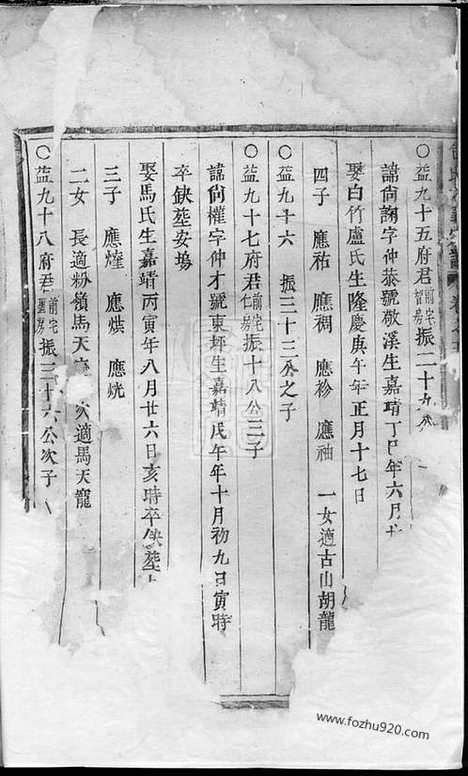 ○益九十五府君前宅智房振二十九公
諱尙詢字仲恭號敬溪生嘉靖丁巳年六月廿
娶白竹盧氏生隆慶庚午年正月十七日
四子 應祐 應裯 應袗 應袖 一女適古山胡龍
○益九十六 振三十三公之子
○益九十七府君前宅仁房振十八公三子
諱尙權字仲才號東坪生嘉靖戊午年十月初九日寅時
卒缺塟安塢
娶馬氏生嘉靖丙寅年八月廿六日亥時卒缺塟
三子 應煃 應熼 應烍
二女 長適粉嶺馬天 次適馬天寵
○益九十八府君前宅 房振三十六公次子
www.fozhu920.com